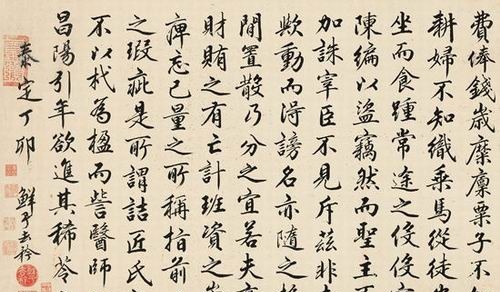 費俸錢歲糜廩粟子不
耕婦不知織乘馬從徒
坐而食踵常途之促促
陳編以盜竊然而聖主
加誅宰臣不見斥茲非
歟動而得謗名亦隨之
閒置散乃分之宜若夫
財賄之有亡計班資之
庳忘己量之所稱指前
之瑕疵是所謂詰匠氏
不以杙為楹而訾醫師
昌陽引年欲進其稀苓
泰定丁卯 鮮于去矜